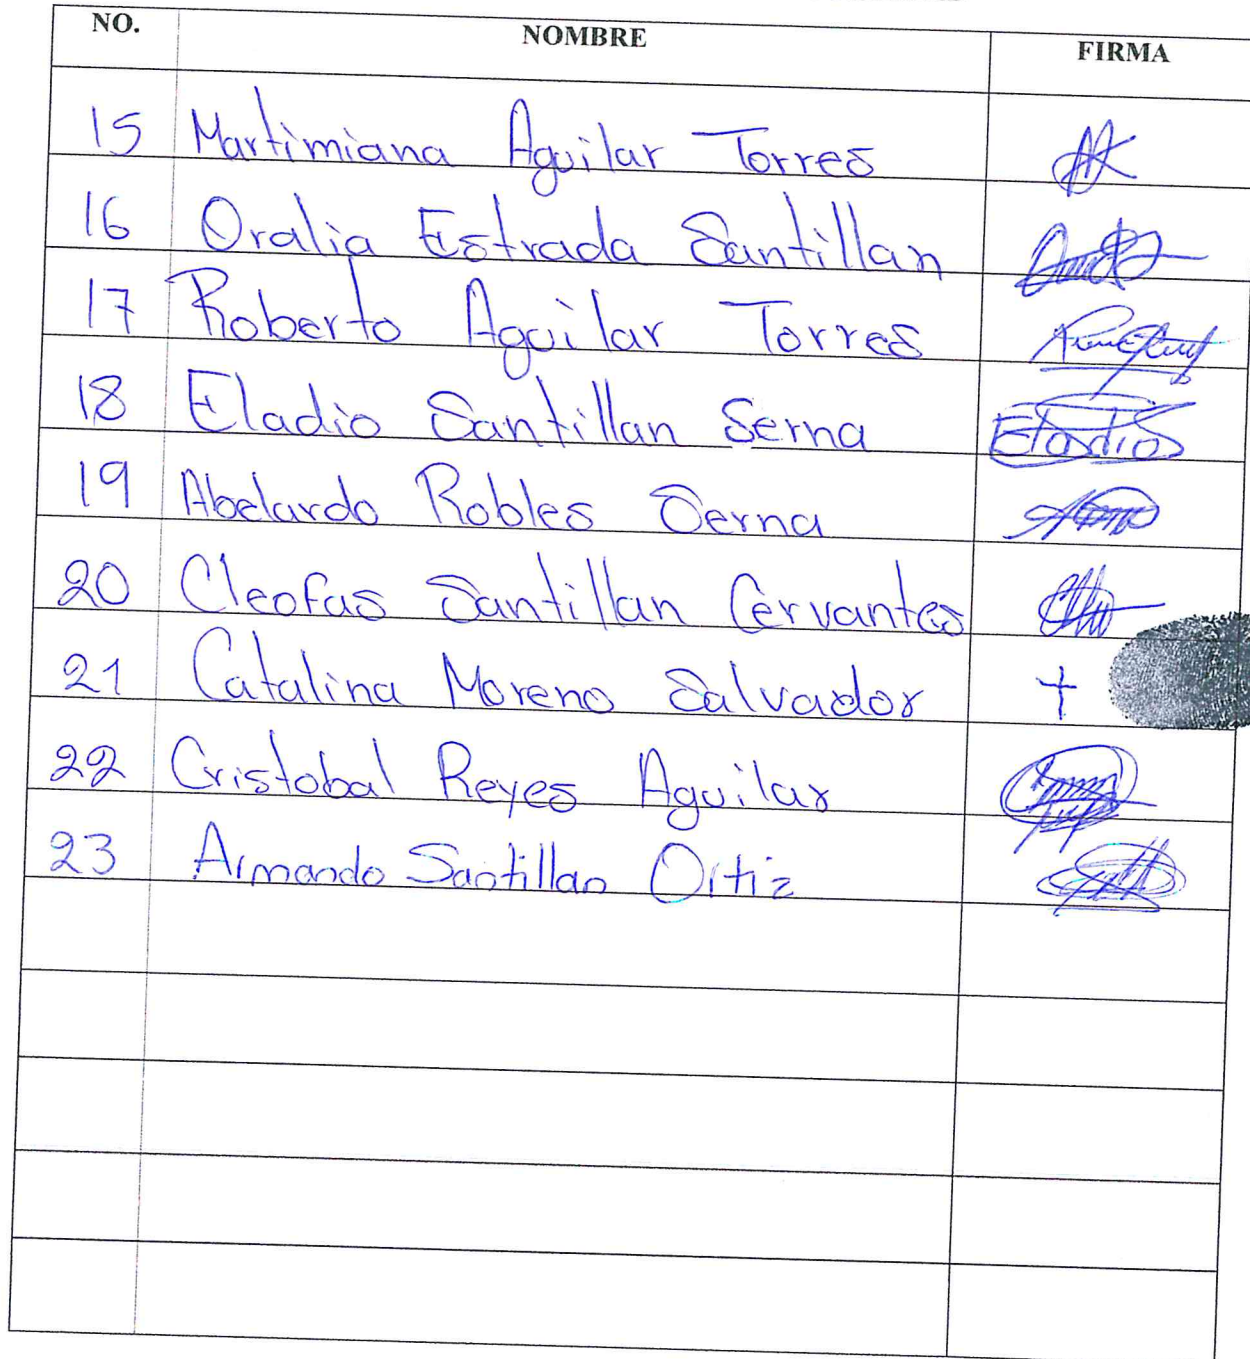 NO. NOMBRE FIRMA
15 Martimiana Aguilar Torres
16 Oralia Estrada Santillan
17 Roberto Aguilar Torres
18 Eladio Santillan Serna Eladio
19 Abelardo Robles Serna
20 Cleofas Santillan Cervantes
21 Catalina Moreno Salvador
22 Cristobal Reyes Aguilar
23 Armando Santillan Ortiz